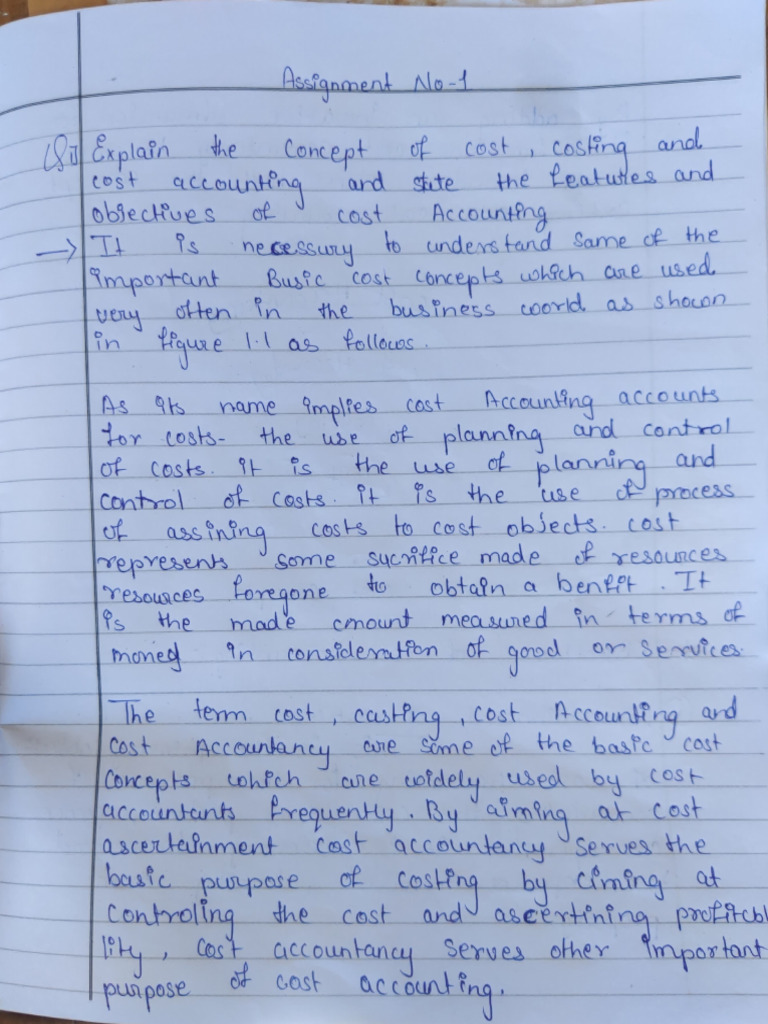 Assignment No-1
Q1] Explain the Concept of cost, costing and
cost accounting and state the features and
objectives of cost Accounting
→ It is necessury to understand same of the
important Busic cost concepts which are used
very often in the business world as shown
in figure 1.1 as follows.
As its name implies cost Accounting accounts
for costs- the use of planning and control
of costs. it is the use of planning and
control of costs. it is the use of process
of assining costs to cost objects. cost
represents some sucrifice made of resources
resources foregone to obtain a benfit. It
is the made cmount measured in terms of
moned in consideration of good or services.
The term cost, casting, cost Accounting and
cost Accountancy are some of the basic cost
concepts which are widely used by cost
accountants frequently. By aiming at cost
ascertainment cost accountancy serves the
basic purpose of costing by ciming at
controling the cost and ascertining profitcbi
lity, cost accountancy serves other important
purpose of cost accounting.